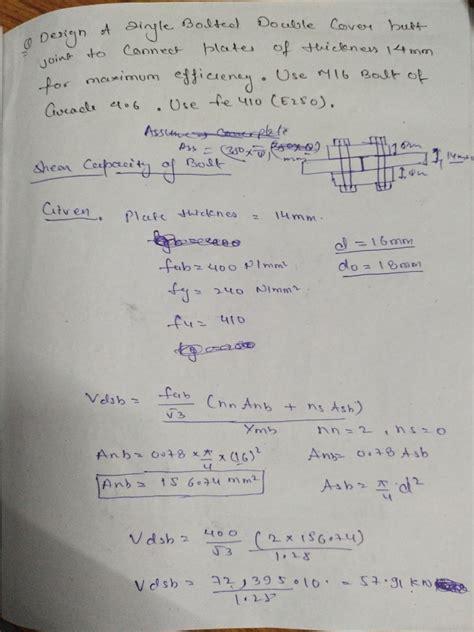 Q Design A Single Bolted Double Cover butt
joint to Connect plates of thickness 14mm
for maximum efficiency. Use M16 Bolt of
Grade 4.6. Use fe 410 (E250).
Shear Capacity of Bolt
8mm
14mm
8mm
Given. Plate thicknes = 14mm.
fub = 400 N/mm²
d = 16mm
fy = 240 N/mm²
do = 18mm
fu = 410
Vdsb = fub/√3 (nn Anb + ns Asb)/γmb
nn = 2, ns = 0
Anb = 0.78 × π/4 × (16)²
Anb = 0.78 Asb
Anb = 156.74 mm²
Asb = π/4 · d²
Vdsb = 400/√3 (2 × 156.74)/1.25
Vdsb = 72,395.10/1.25 = 57.91 KN